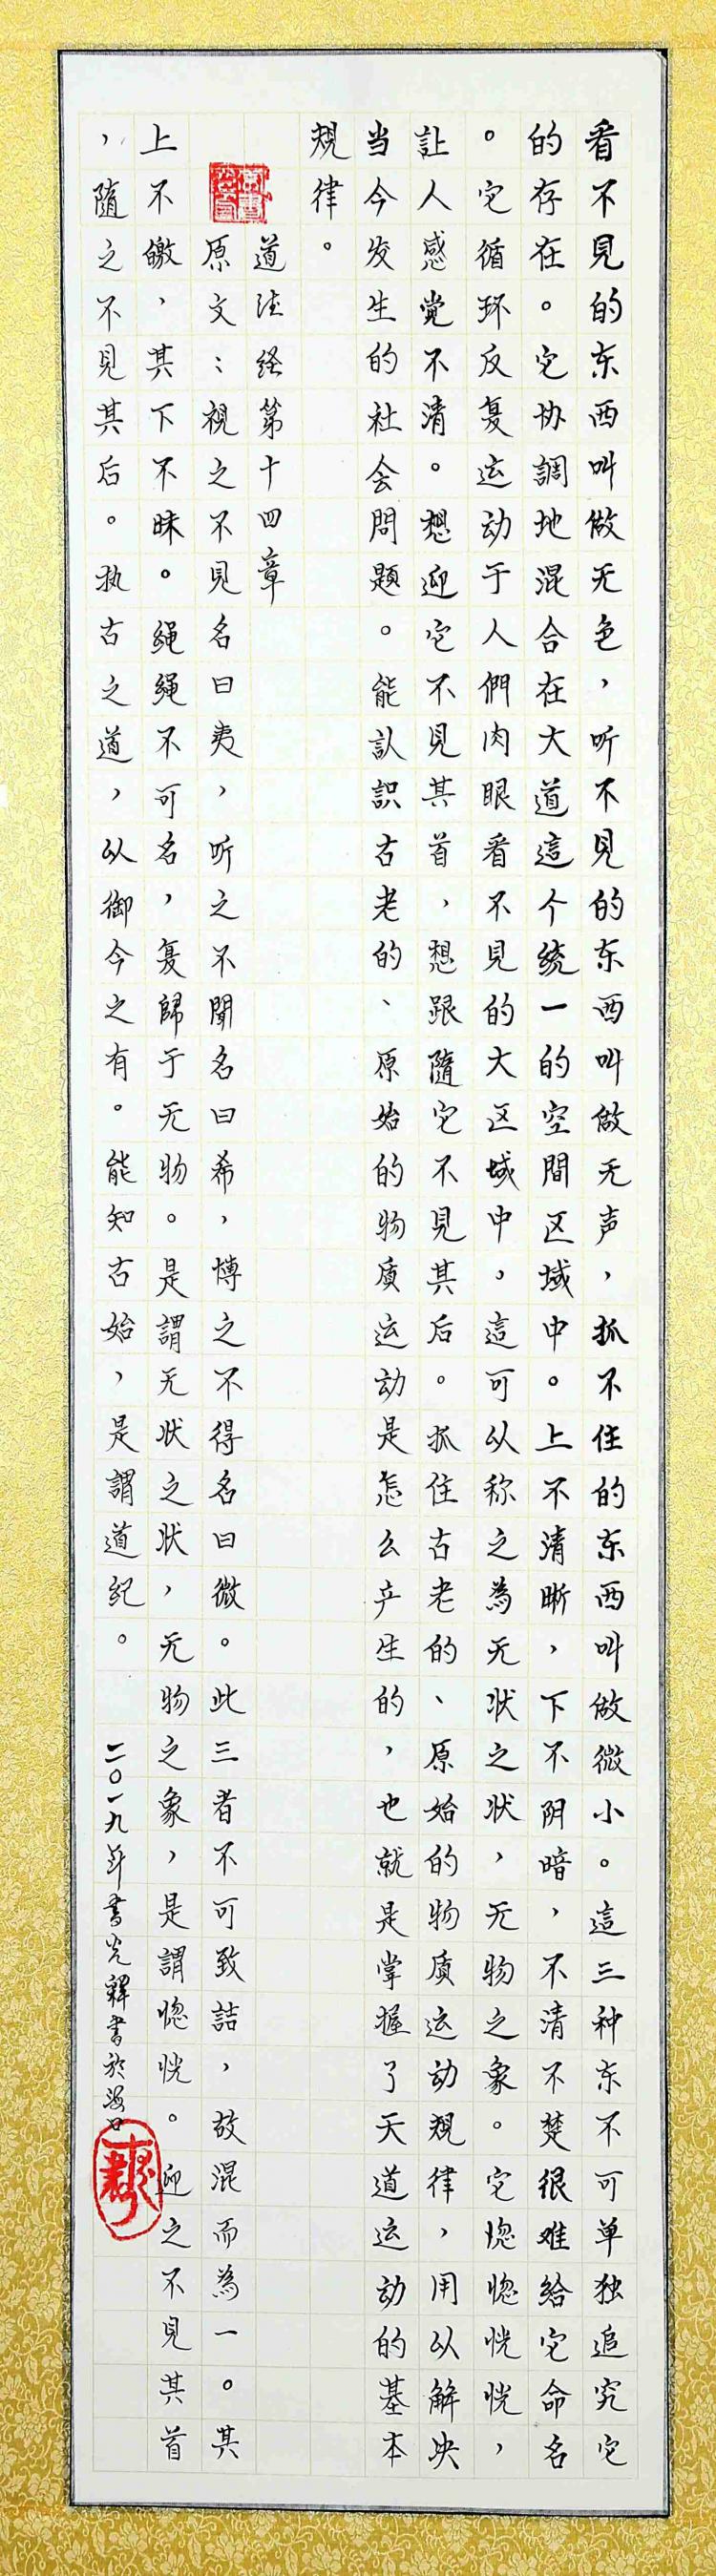 看不見的东西叫做无色，听不見的东西叫做无声，抓不住的东西叫做微小。這三种东不可单独追究它
的存在。它协調地混合在大道這个统一的空間区域中。上不清晰，下不阴暗，不清不楚很难给它命名
。它循环反复运动于人們肉眼看不見的大区域中。這可以称之為无状之状，无物之象。它惚惚恍恍，
訨人感觉不清。想迎它不見其首，想跟隨它不見其后。抓住古老的、原始的物质运动規律，用以解决
当今发生的社会問題。能认識古老的、原始的物质运动是怎么产生的，也就是掌握了天道运动的基本
規律。
道法经第十四章
原文：視之不見名曰夷，听之不聞名曰希，博之不得名曰微。此三者不可致詰，故混而為一。其
上不皦，其下不昧。绳绳不可名，复歸于无物。是謂无状之状，无物之象，是謂惚恍。迎之不見其首
，隨之不見其后。执古之道，以御今之有。能知古始，是謂道纪。
二〇一九年書光釋書於海口